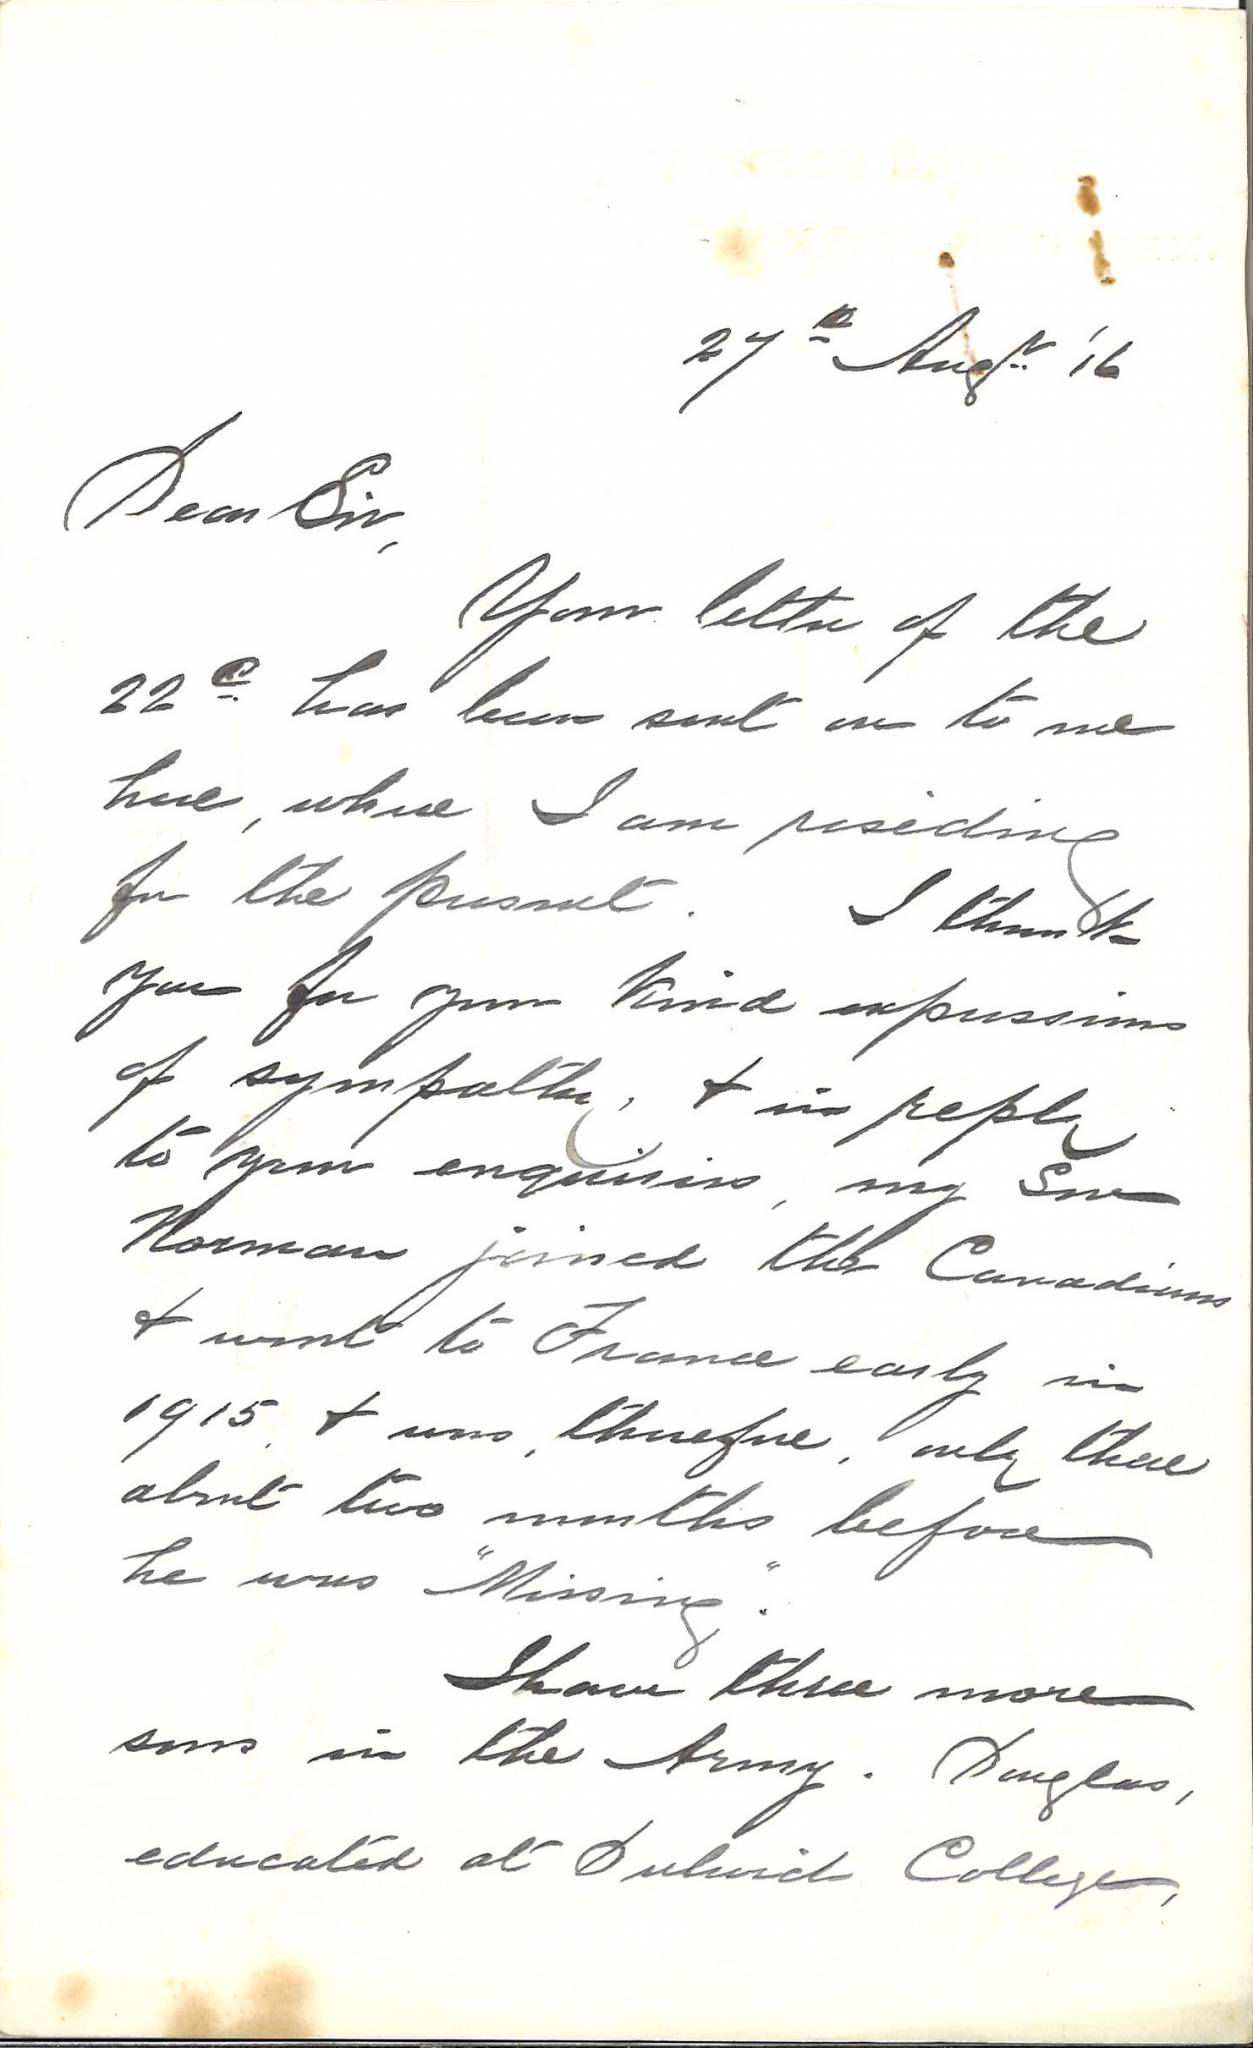 27th Augt. '16
Dear Sir,
Your letter of the
22d has been sent on to me
here, where I am residing
for the present. I thank
you for your kind expressions
of sympathy, & in reply
to your enquiries, my Son
Norman joined the Canadians
& went to France early in
1915, & was, therefore, only there
about two months before
he was "Missing".
I have three more
sons in the Army. Douglas,
educated at Dulwich College,